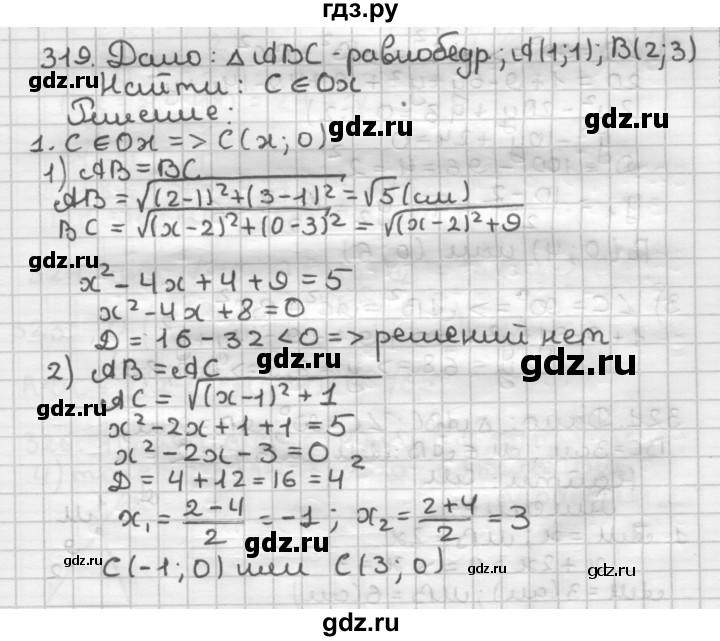 гдз.ру
319. Дано: △ABC - равнобедр; A(1;1); B(2;3)
Найти: C ∈ Ox
Решение:
gdz.ru
1. C ∈ Ox => C(x; 0)
1) AB = BC
gdz.ru
AB = √((2-1)²+(3-1)²) = √5 (см)
BC = √((x-2)²+(0-3)²) = √((x-2)²+9
gdz.ru
x² - 4x + 4 + 9 = 5
x² - 4x + 8 = 0
D = 16 - 32 < 0 => решений нет
gdz.ru gdz.ru
2) AB = AC
gdz.ru
AC = √((x-1)² + 1
x² - 2x + 1 + 1 = 5
x² - 2x - 3 = 0
D = 4 + 12 = 16 = 4²
x₁ = (2-4)/2 = -1; x₂ = (2+4)/2 = 3
gdz.ru gdz.ru gdz.ru
C(-1; 0) или C(3; 0)
gdz.ru